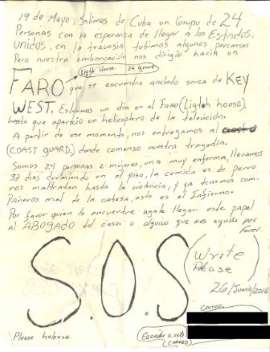 19 de Mayo: Salimos de Cuba un Grupo de 24
Personas con la esperanza de llegar a los Estados
Unidos, en la travesia tubimos algunos percances
Pero nuestra embarcación nos dirigio hacia un
Ligth House
FARO que se encuentra anclado serca de KEY
WEST. Estamos un dia en el Faro (Ligth house)
hasta que aparecio en helicoptero de la television.
A partir de ese momento, nos entregamos al
(COAST GUARD) donde comenso nuestra tragedia.
Somos 24 personas 2 mujeres, una muy enferma, llevamos
37 dias durmiendo en el piso, la comida es de Perro
nos maltratan hasta la violencia, y ya tenemos com-
Pañeros mal de la cabeza, esto es el Infierno.
Por favor quien lo encuentre agale llegar este papel
al ABOGADO del caso o alguien que nos ayude por
Favor
S.O.S
(Write
Please
26/Junio/2016
Please